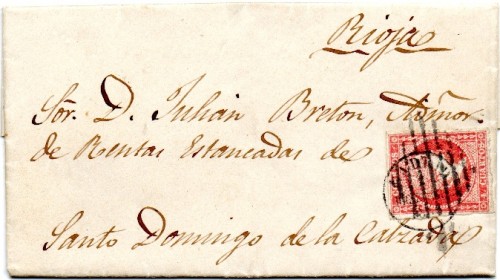 Rioja
Sór. D. Julián Breton, Admor
de Rentas Estancadas de
Santo Domingo de la Calzada